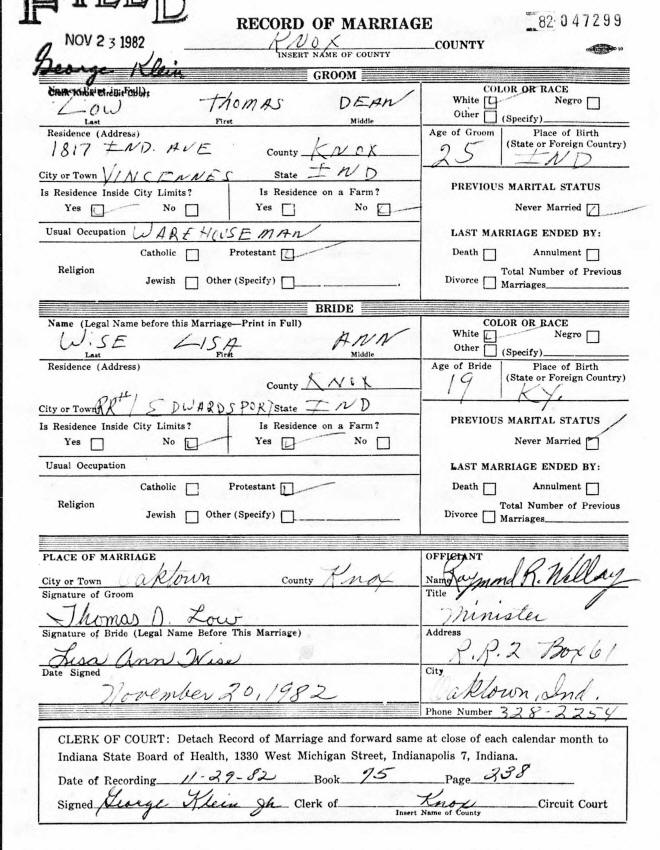 FILED
RECORD OF MARRIAGE
82 047299
NOV 23 1982
KNOX COUNTY
INSERT NAME OF COUNTY
George Klein
GROOM
Name (Print in Full)
LOW THOMAS DEAN
Last First Middle
COLOR OR RACE
White Negro
Other (Specify)
Residence (Address)
1817 IND. AVE County KNOX
City or Town VINCENNES State IND
Age of Groom Place of Birth
(State or Foreign Country)
25 IND
Is Residence Inside City Limits? Is Residence on a Farm?
Yes No Yes No
PREVIOUS MARITAL STATUS
Never Married
Usual Occupation WAREHOUSEMAN
LAST MARRIAGE ENDED BY:
Catholic Protestant
Religion
Jewish Other (Specify)
Death Annulment
Divorce Total Number of Previous
Marriages
BRIDE
Name (Legal Name before this Marriage—Print in Full)
WISE LISA ANN
Last First Middle
COLOR OR RACE
White Negro
Other (Specify)
Residence (Address)
County KNOX
City or Town RR#1 EDWARDSPORT State IND
Age of Bride Place of Birth
(State or Foreign Country)
19 KY.
Is Residence Inside City Limits? Is Residence on a Farm?
Yes No Yes No
PREVIOUS MARITAL STATUS
Never Married
Usual Occupation
LAST MARRIAGE ENDED BY:
Catholic Protestant
Religion
Jewish Other (Specify)
Death Annulment
Divorce Total Number of Previous
Marriages
PLACE OF MARRIAGE
City or Town Oaktown County Knox
Signature of Groom
Thomas D. Low
Signature of Bride (Legal Name Before This Marriage)
Lisa Ann Wise
Date Signed
November 20, 1982
OFFICIANT
Name Raymond R. Willay
Title
Minister
Address
R.R.2 Box 61
City
Oaktown, Ind.
Phone Number 328-2254
CLERK OF COURT: Detach Record of Marriage and forward same at close of each calendar month to
Indiana State Board of Health, 1330 West Michigan Street, Indianapolis 7, Indiana.
Date of Recording 11-29-82 Book 75 Page 238
Signed George Klein Jr. Clerk of Knox Circuit Court
Insert Name of County